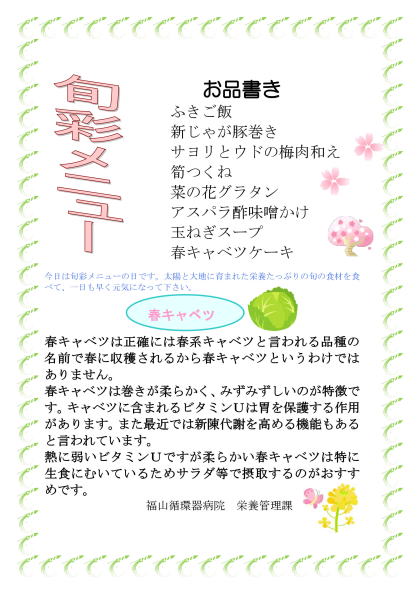 旬彩メニュー
お品書き
ふきご飯
新じゃが豚巻き
サヨリとウドの梅肉和え
筍つくね
菜の花グラタン
アスパラ酢味噌かけ
玉ねぎスープ
春キャベツケーキ
今日は旬彩メニューの日です。太陽と大地に育まれた栄養たっぷりの旬の食材を食
べて、一日も早く元気になって下さい。
春キャベツ
春キャベツは正確には春系キャベツと言われる品種の
名前で春に収穫されるから春キャベツというわけでは
ありません。
春キャベツは巻きが柔らかく、みずみずしいのが特徴で
す。キャベツに含まれるビタミンUは胃を保護する作用
があります。また最近では新陳代謝を高める機能もある
と言われています。
熱に弱いビタミンUですが柔らかい春キャベツは特に
生食にむいているためサラダ等で摂取するのがおすす
めです。
福山循環器病院　栄養管理課